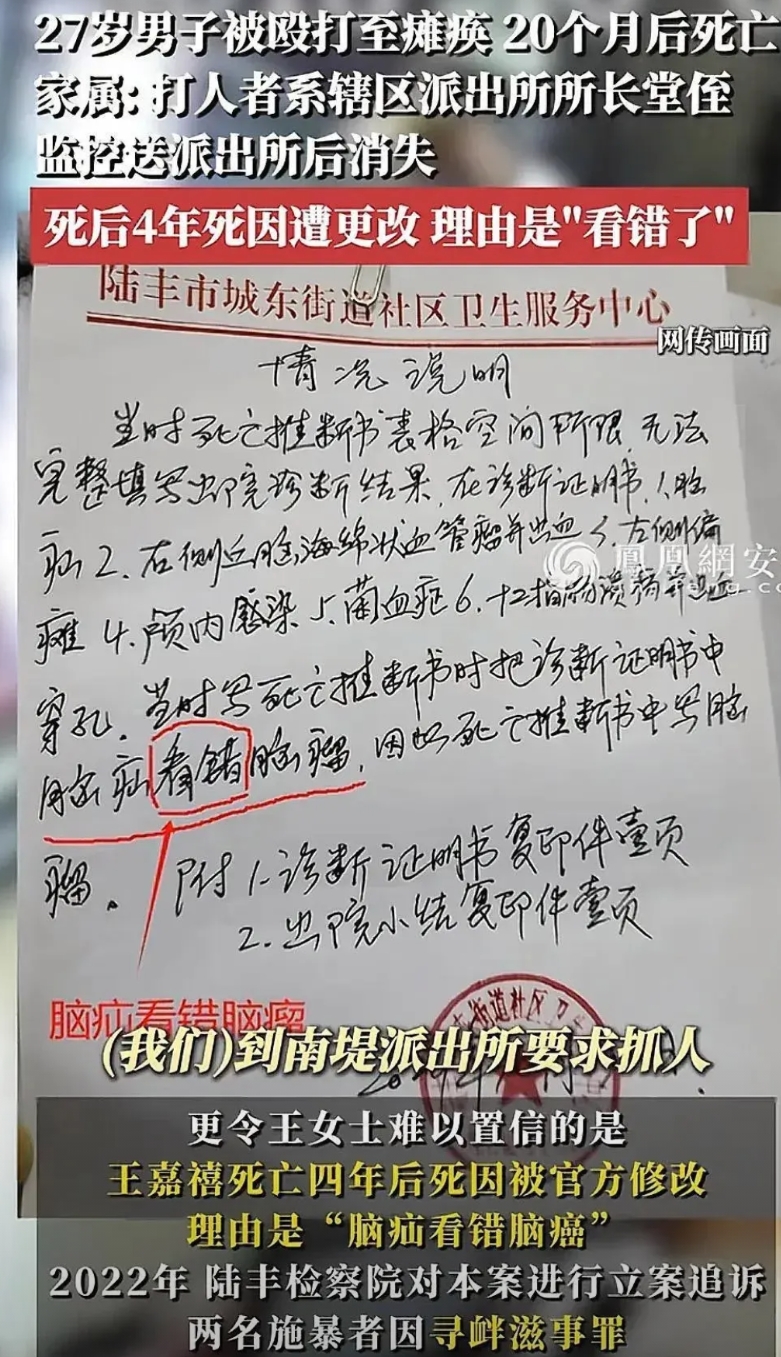 27岁男子被殴打至瘫痪 20个月后死亡
家属: 打人者系辖区派出所所长堂侄
监控送派出所后消失
死后4年死因遭更改 理由是"看错了"
陆丰市城东街道社区卫生服务中心
网传画面
情况说明
当时死亡推断书表格空间所限,无法
完整填写出院诊断结果,在诊断证明书,1.脑
疝2、右侧丘脑海绵状血管瘤并出血3、左侧偏
鳳凰網安
瘫 4、颅内感染 5、菌血症 6、十二指肠溃疡并出血
穿孔、当时写死亡推断书时把诊断证明书中
脑疝看错脑瘤,因此死亡推断书中写脑
瘤。 附 1、诊断证明书复印件壹页
2、出院小结复印件壹页
街道社区卫
脑疝看错脑瘤
(我们)到南堤派出所要求抓人
更令王女士难以置信的是
王嘉禧死亡四年后死因被官方修改
理由是“脑疝看错脑癌”
2022年 陆丰检察院对本案进行立案追诉
两名施暴者因寻衅滋事罪